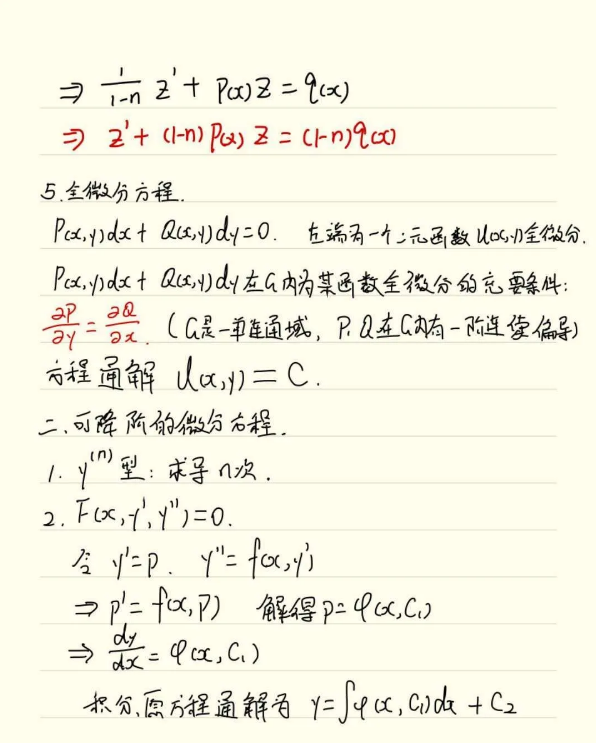 ⇒ 1/(1-n) z' + P(x)z = q(x)
⇒ z' + (1-n)P(x)z = (1-n)q(x)
5.全微分方程.
P(x,y)dx + Q(x,y)dy=0. 左端为一个二元函数 U(x,y)全微分.
P(x,y)dx + Q(x,y)dy在G内为某函数全微分的充要条件:
∂P/∂y = ∂Q/∂x. (G是一单连通域, P.Q在G内有一阶连续偏导)
方程通解 U(x,y) = C.
二、可降阶的微分方程.
1. y⁽ⁿ⁾型: 求导n次.
2. F(x,y',y'')=0.
令 y'=p. y''=f(x,y')
⇒ p'=f(x,p) 解得p=φ(x,C₁)
⇒ dy/dx = φ(x,C₁)
积分,原方程通解为 y=∫φ(x,C₁)dx + C₂